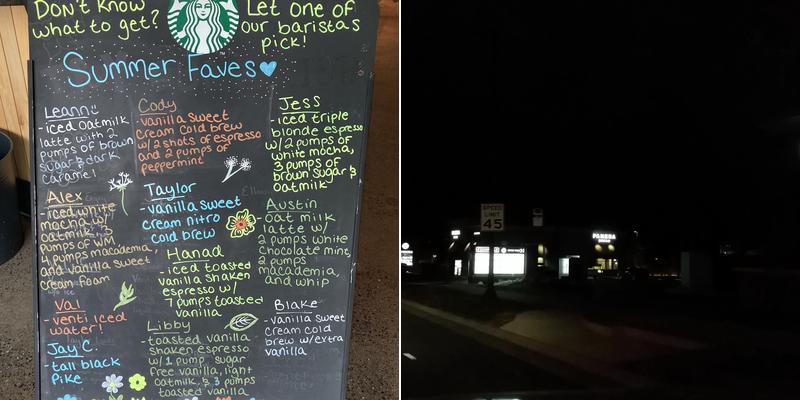 Don't know
what to get?
Let one of
our baristas
pick!
Summer Faves
Leann
-iced oatmilk
latte with 2
pumps of brown
sugar & dark
caramel
Cody
-vanilla sweet
cream cold brew
w/2 shots of espresso
and 2 pumps of
peppermint
Jess
-iced triple
blonde espresso
w/2 pumps of
white mocha,
3 pumps of
brown sugar &
oatmilk
Alex
-iced white
mocha w/
oatmilk, 3
pumps of WM,
4 pumps macadamia,
and vanilla sweet
cream foam
Taylor
-vanilla sweet
cream nitro
cold brew
Austin
-oat milk
latte w/
2 pumps white
chocolate mint,
2 pumps
macademia,
and whip
Hanad
-iced toasted
vanilla shaken
espresso w/
7 pumps toasted
vanilla
Val
-venti iced
water!
Jay C.
-tall black
Pike
Libby
-toasted vanilla
shaken espresso
w/1 pump sugar
free vanilla, light
oatmilk, & 3 pumps
toasted vanilla
Blake
-vanilla sweet
cream cold
brew w/extra
vanilla
SPEED
LIMIT
45
PANERA
BREAD